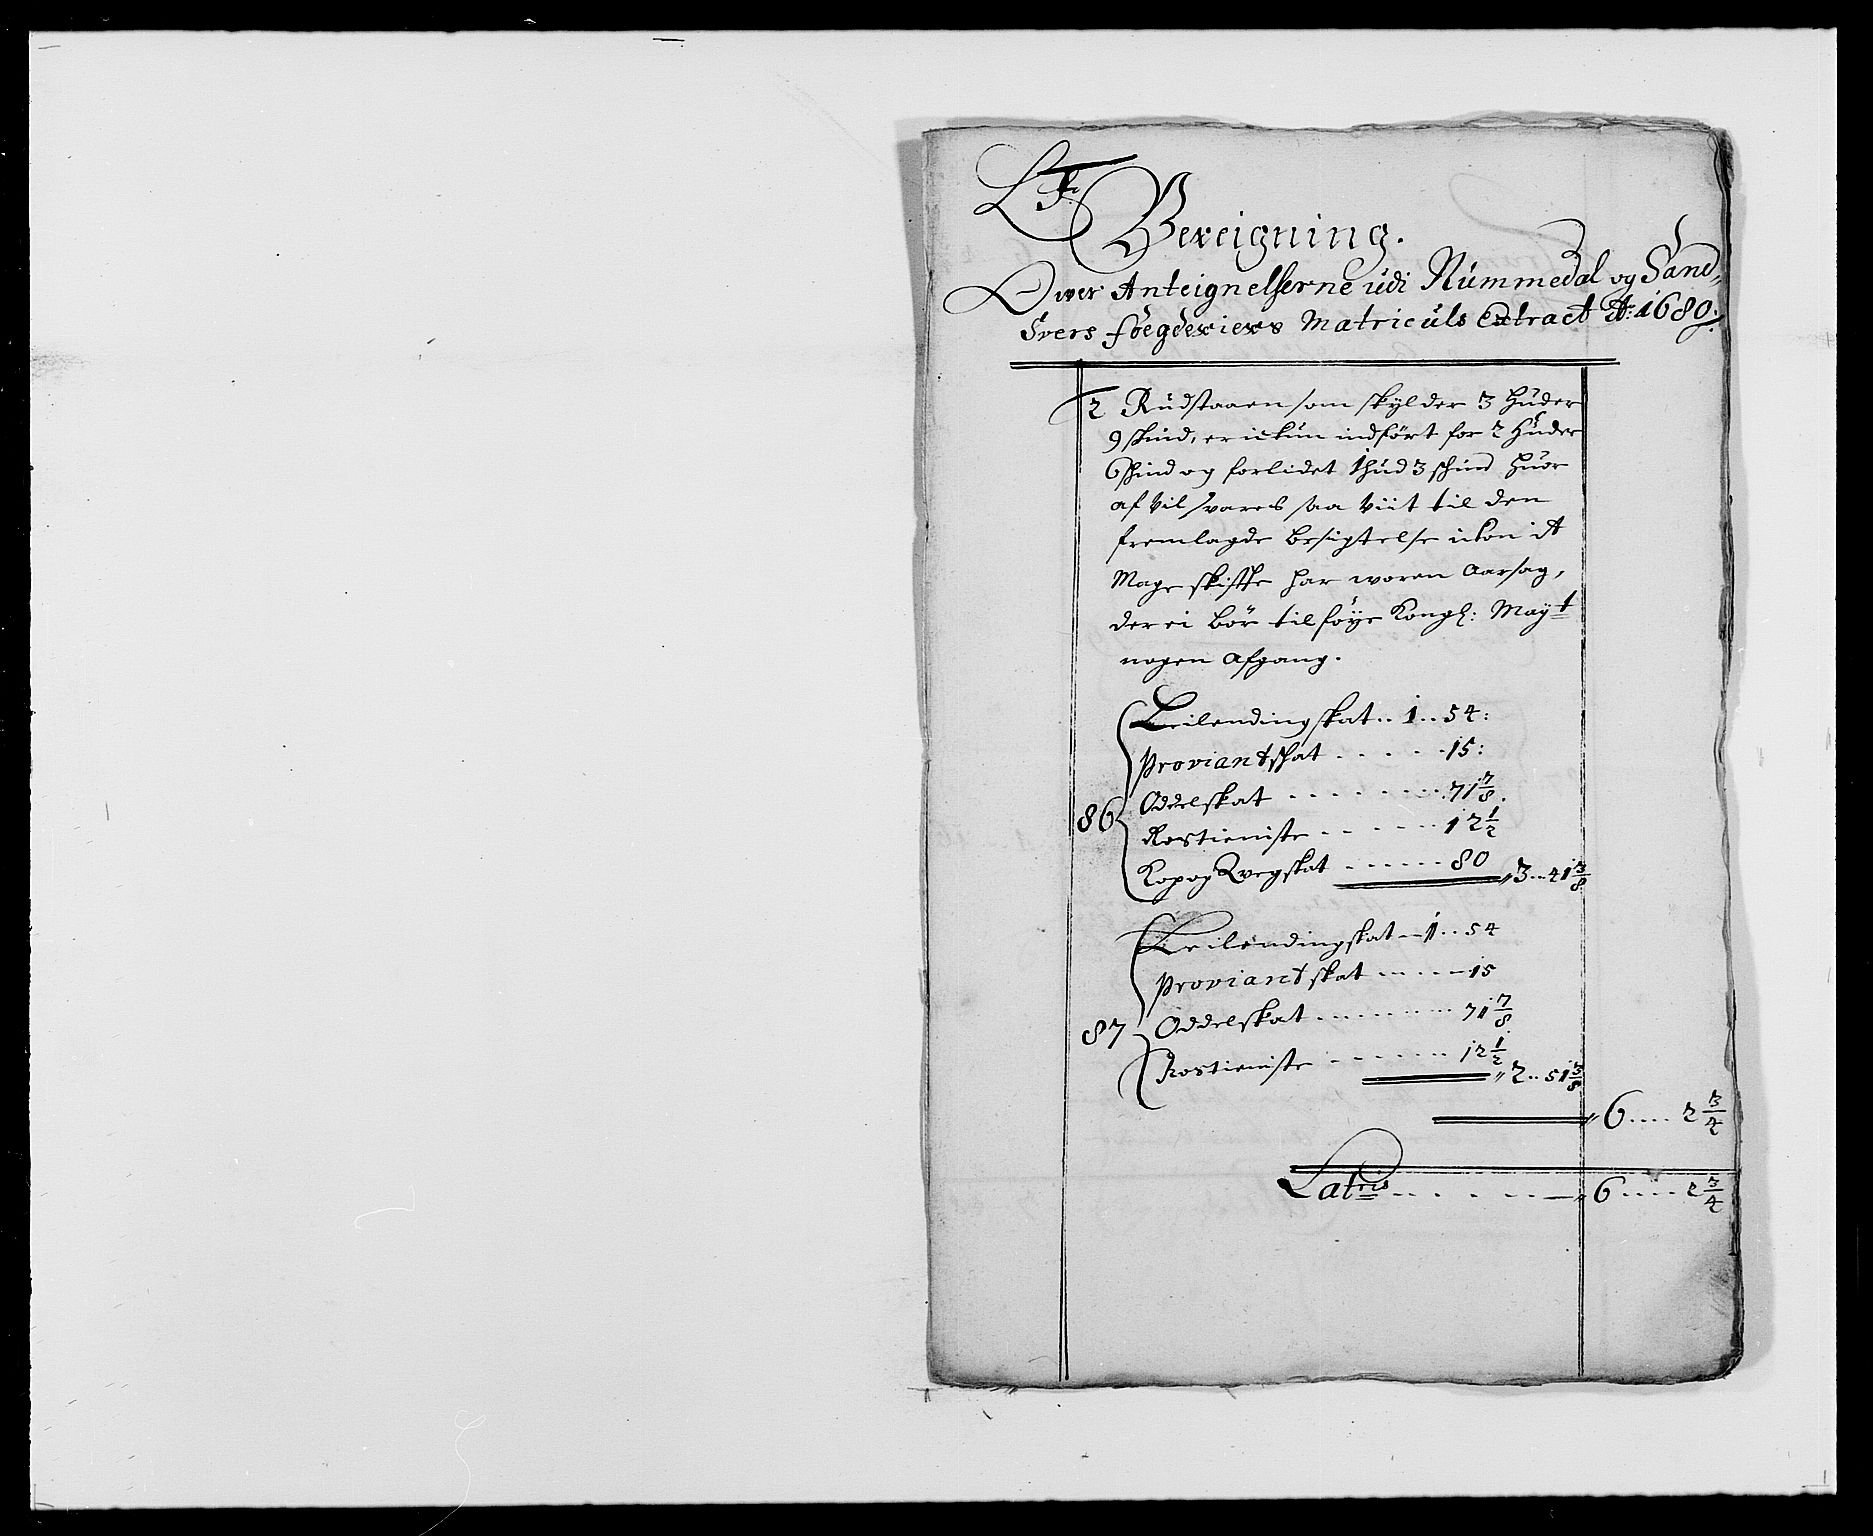 Bereigning.
Ower Anteignelserne udi Nummedal og Sand-
Svers föegderiers Matriculs Extract A: 1680:
2 Rudstaaen som skylder 3 Huder
9 skind, er ickun indfört for 2 Huder
6 skind og forlidet 1 hud 3 schind huor
af vil svares saa viit til den
fremlagde besigtelse icke it
Mageskifte har woren Aarsag,
der ei bör tilföye Kongl: Mayt
nogen Afgang.
Leilendingskat .. 1 .. 54:
Proviantskat ..... 15:
Oddelskat ........ 71 7/8.
Rostieniste ...... 12 1/2
86
Kopog Qvegskat ...... 80 " 3 .. 41 3/8
Leilendingskat .. 1 .. 54
Proviantskat ..... 15
87 Oddelskat ........ 71 7/8
Rostieniste ....... 12 1/2
" 2 .. 51 3/8
" 6 .... 2 3/4
Latris ...... " 6 ..... 2 3/4